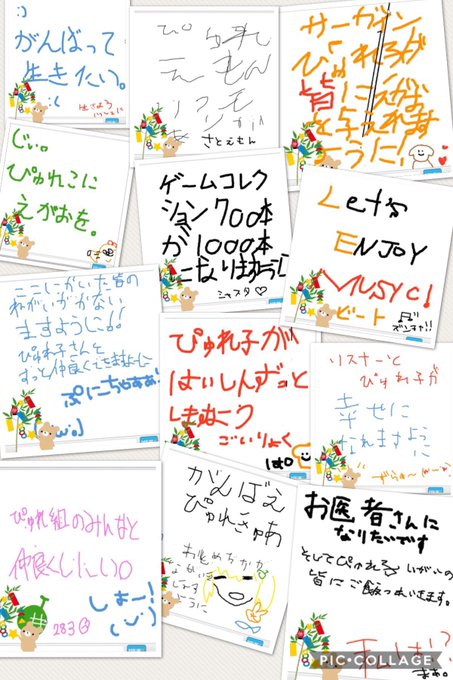 :)
がんばって
生きたい。
:(
ぴゅれ
さとえもん
サーガイン
ぴゅれ子が
皆にえがお
を与えれます
ように!
じぃ。
ぴゅれこに
えがおを。
ゲームコレク
ション700本
が1000本
になりますように
シャスタ♡
Let's
ENJOY
MUSYC!
ビート
ズンチャ!!
ここにかいた皆の
ねがいがかない
ますように!!
ぴゅれ子さんと
ずっと仲良くできますように
ぷにちゃすぁぁ!
ぴゅれ子が
はいしんずっと
しますよーに
ごいりょく
リスナーと
ぴゅれ子が
幸せに
なれますように
ぴゅれ組のみんなと
仲良くしたい。
しょー!
283
がんばえ
ぴゅれきゅあ
お医者さんに
なりたいです
そしてぴゅれ子いがいの
皆にご飯つれいきます。
PIC•COLLAGE